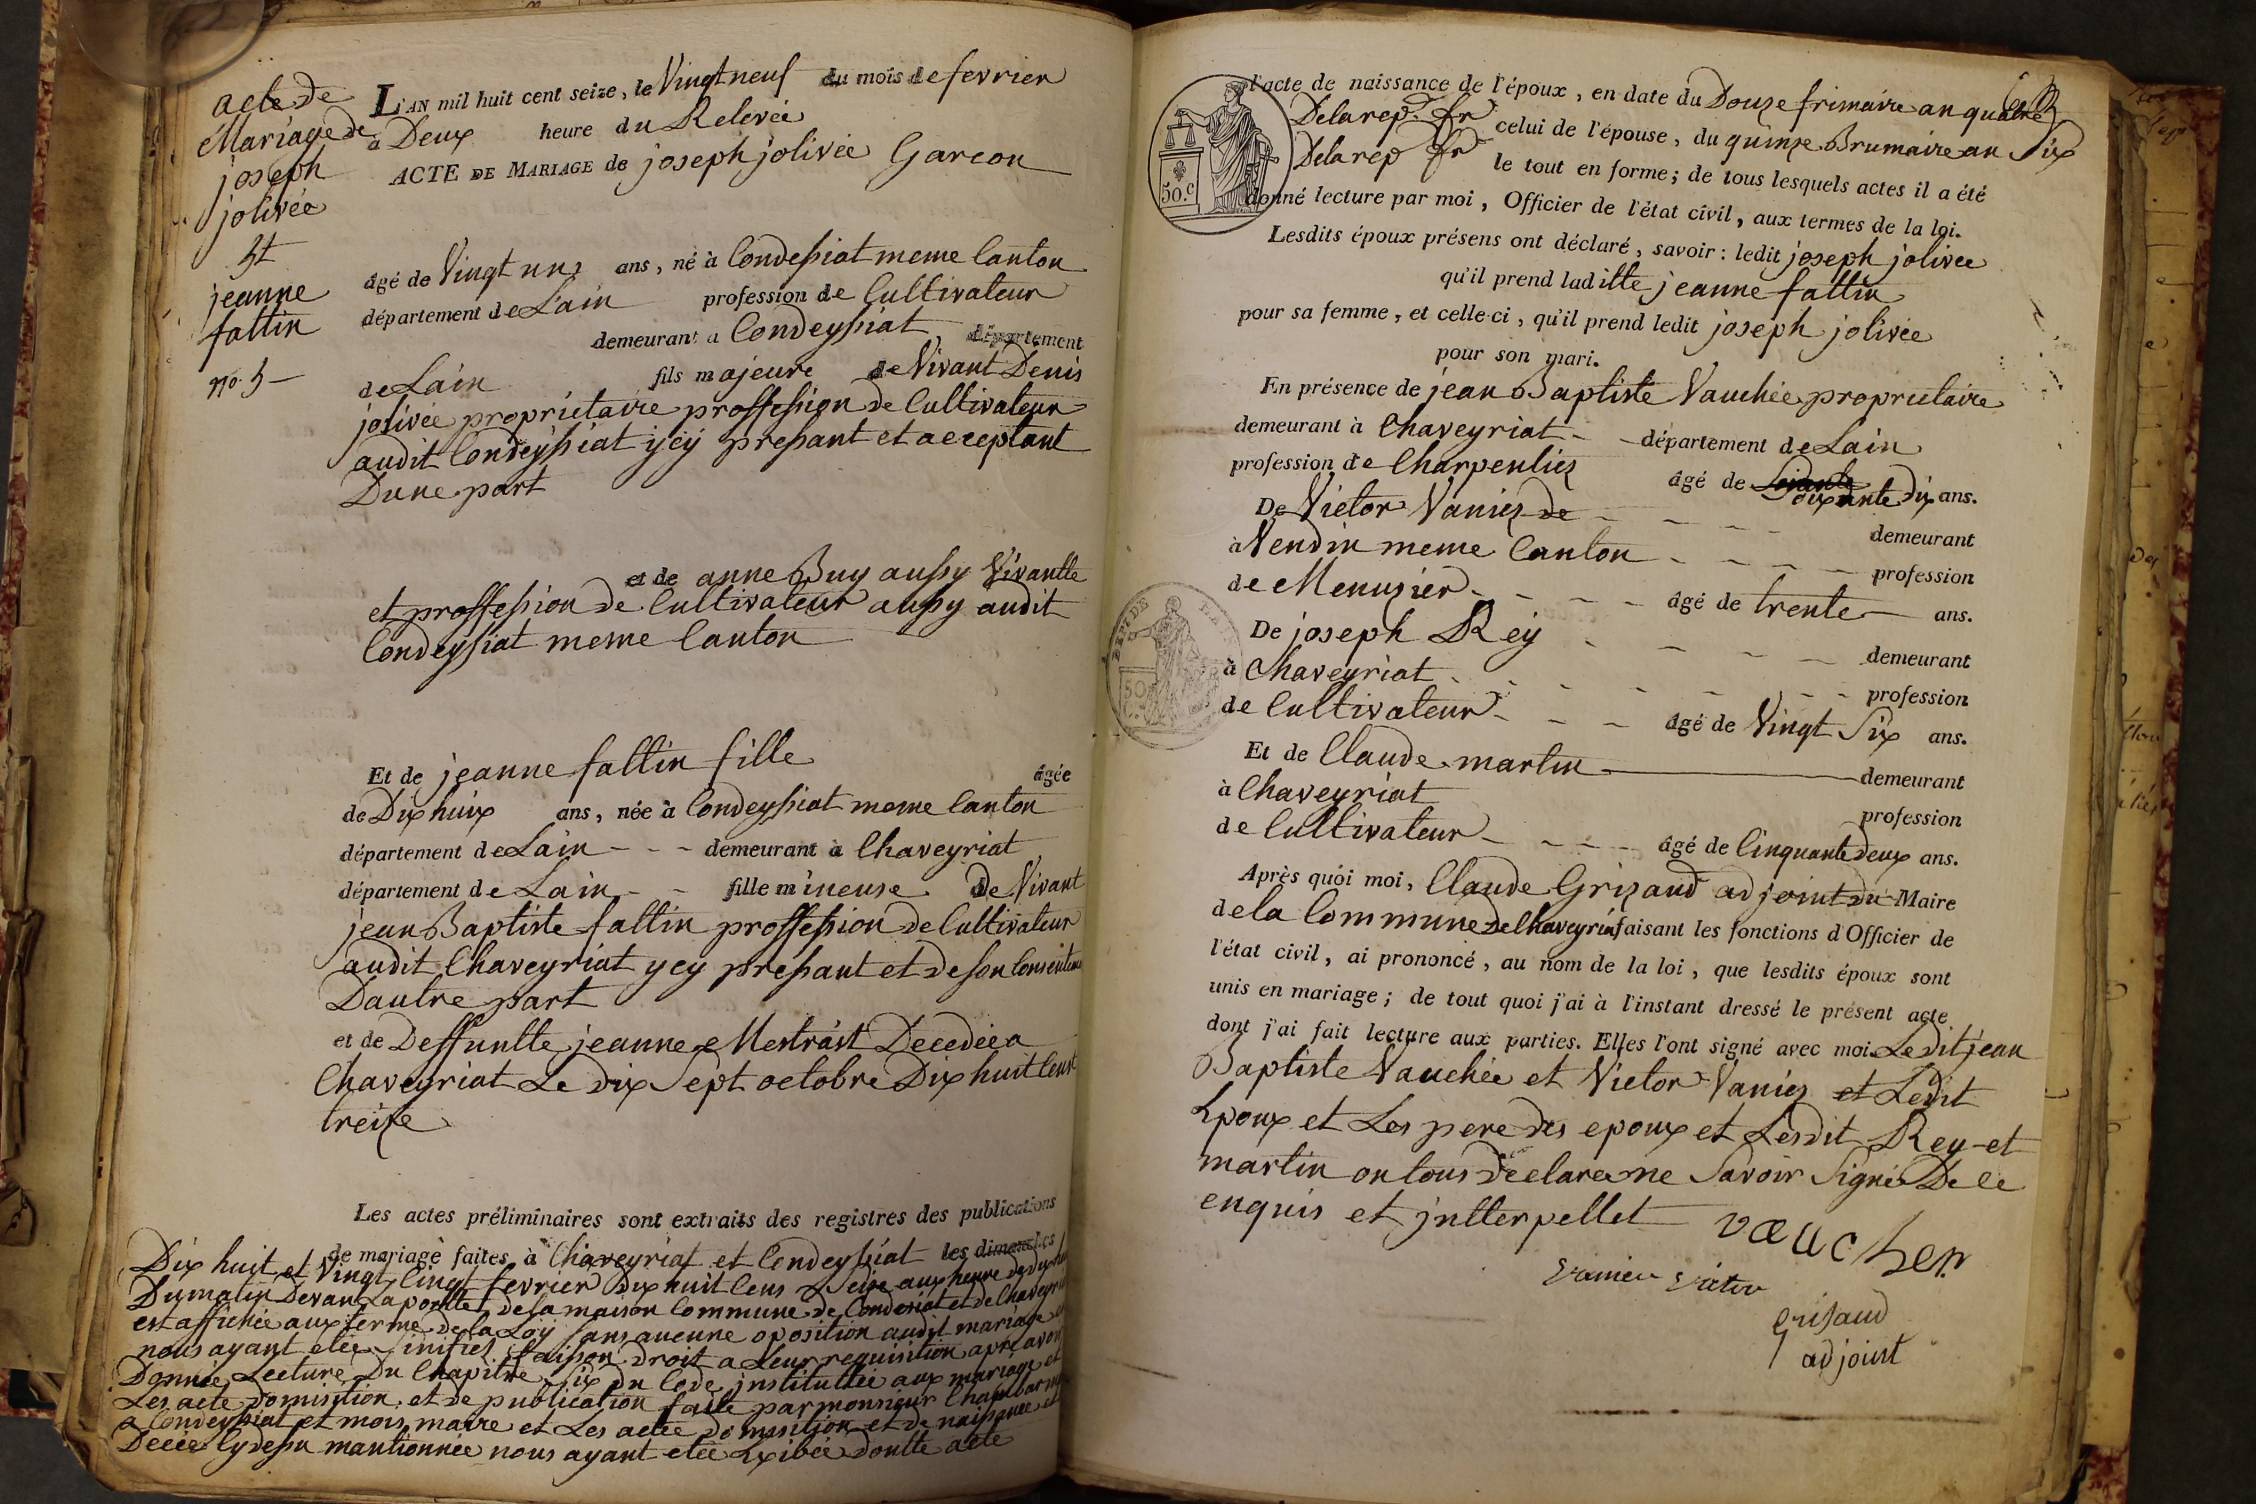 acte de
Mariage de
joseph
jolivée
Et
jeanne
fattin
No. 5
L'AN mil huit cent seize, le Vingt neuf du mois de fevrier
à Deux heure du Relevée
ACTE DE MARIAGE de joseph jolivée Garcon
âgé de Vingt uns ans, né à Condessiat meme Canton
département de Lain profession de Cultivateur
demeurant a Condeyssiat département
de Lain fils majeure de Vivant Denis
jolivée proprietaire proffession de Cultivateur
audit Condeyssiat ycy pressant et acceptant
Dune part
et de anne Buy aussy Vivantte
et proffession de Cultivateur aussy audit
Condeyssiat meme Canton
Et de jeanne fattin fille âgée
de Dix huix ans, née à Condeyssiat meme Canton
département de Lain demeurant à Chaveyriat
département de Lain fille mineuse de Vivant
jean Baptiste fattin proffession de Cultivateur
audit Chaveyriat ycy pressant et de son
Dautre part
et de Deffuntte jeanne Mestrast Decedée a
Chaveyriat Le dix Sept octobre Dix huit Cent
treize
Les actes préliminaires sont extraits des registres des publications
de mariage faites, à Chaveyriat et Condeyssiat les dimanches
Dix huit et Vingt Cinqt fevrier dix huit Cens Seise aux heure de
Du matin Devant La portte de la maison Commune de Condesiat et de
est affichée aux terme de la Loÿ sans aucune oposition audit mariage
nous ayant etée faisson droit a Leur requisition apré avoir
Donnée Lecture Du Chapitre Six du Code instituttée aux mariage et
Les acte domisition et de publication faite par monsieur
a Condeyssiat et mois maire et Les actee domisition et de naissance et
Decée Cydessu mantionnée nous ayant etée Exibée doutte acte
l'acte de naissance de l'époux, en date du Douze frimaire an quatre
De la rep. fr celui de l'épouse, du quinze Brumaire an Six
De la rep fr le tout en forme; de tous lesquels actes il a été
donné lecture par moi, Officier de l'état civil, aux termes de la loi.
Lesdits époux présens ont déclaré, savoir: ledit joseph jolivée
qu'il prend laditte jeanne fattin
pour sa femme, et celle-ci, qu'il prend ledit joseph jolivée
pour son mari.
En présence de jean Baptiste Vauchée proprietaire
demeurant à Chaveyriat département de Lain
profession de Charpentier âgé de Soixante dix ans.
De Victor Vanier de demeurant
à Vendin meme Canton profession
de Menuzier âgé de trente ans.
De joseph Rey demeurant
à Chaveyriat profession
de Cultivateur âgé de Vingt Six ans.
Et de Claude martin demeurant
à Chaveyriat profession
de Cultivateur âgé de Cinquante deux ans.
Après quoi moi, Claude Grizaud adjoint du Maire
de la Commune De Chaveyriat faisant les fonctions d'Officier de
l'état civil, ai prononcé, au nom de la loi, que lesdits époux sont
unis en mariage; de tout quoi j'ai à l'instant dressé le présent acte,
dont j'ai fait lecture aux parties. Elles l'ont signé avec moi. Le dit jean
Baptiste Vauchée et Victor Vanier et Ledit
Epoux et Les pere des epoux et Lesdit Rey et
martin on tous declaré ne Savoir Signé De ce
enquis et jntterpellet
vaucher
vanier victor
grisaud
adjoint
50.c
50